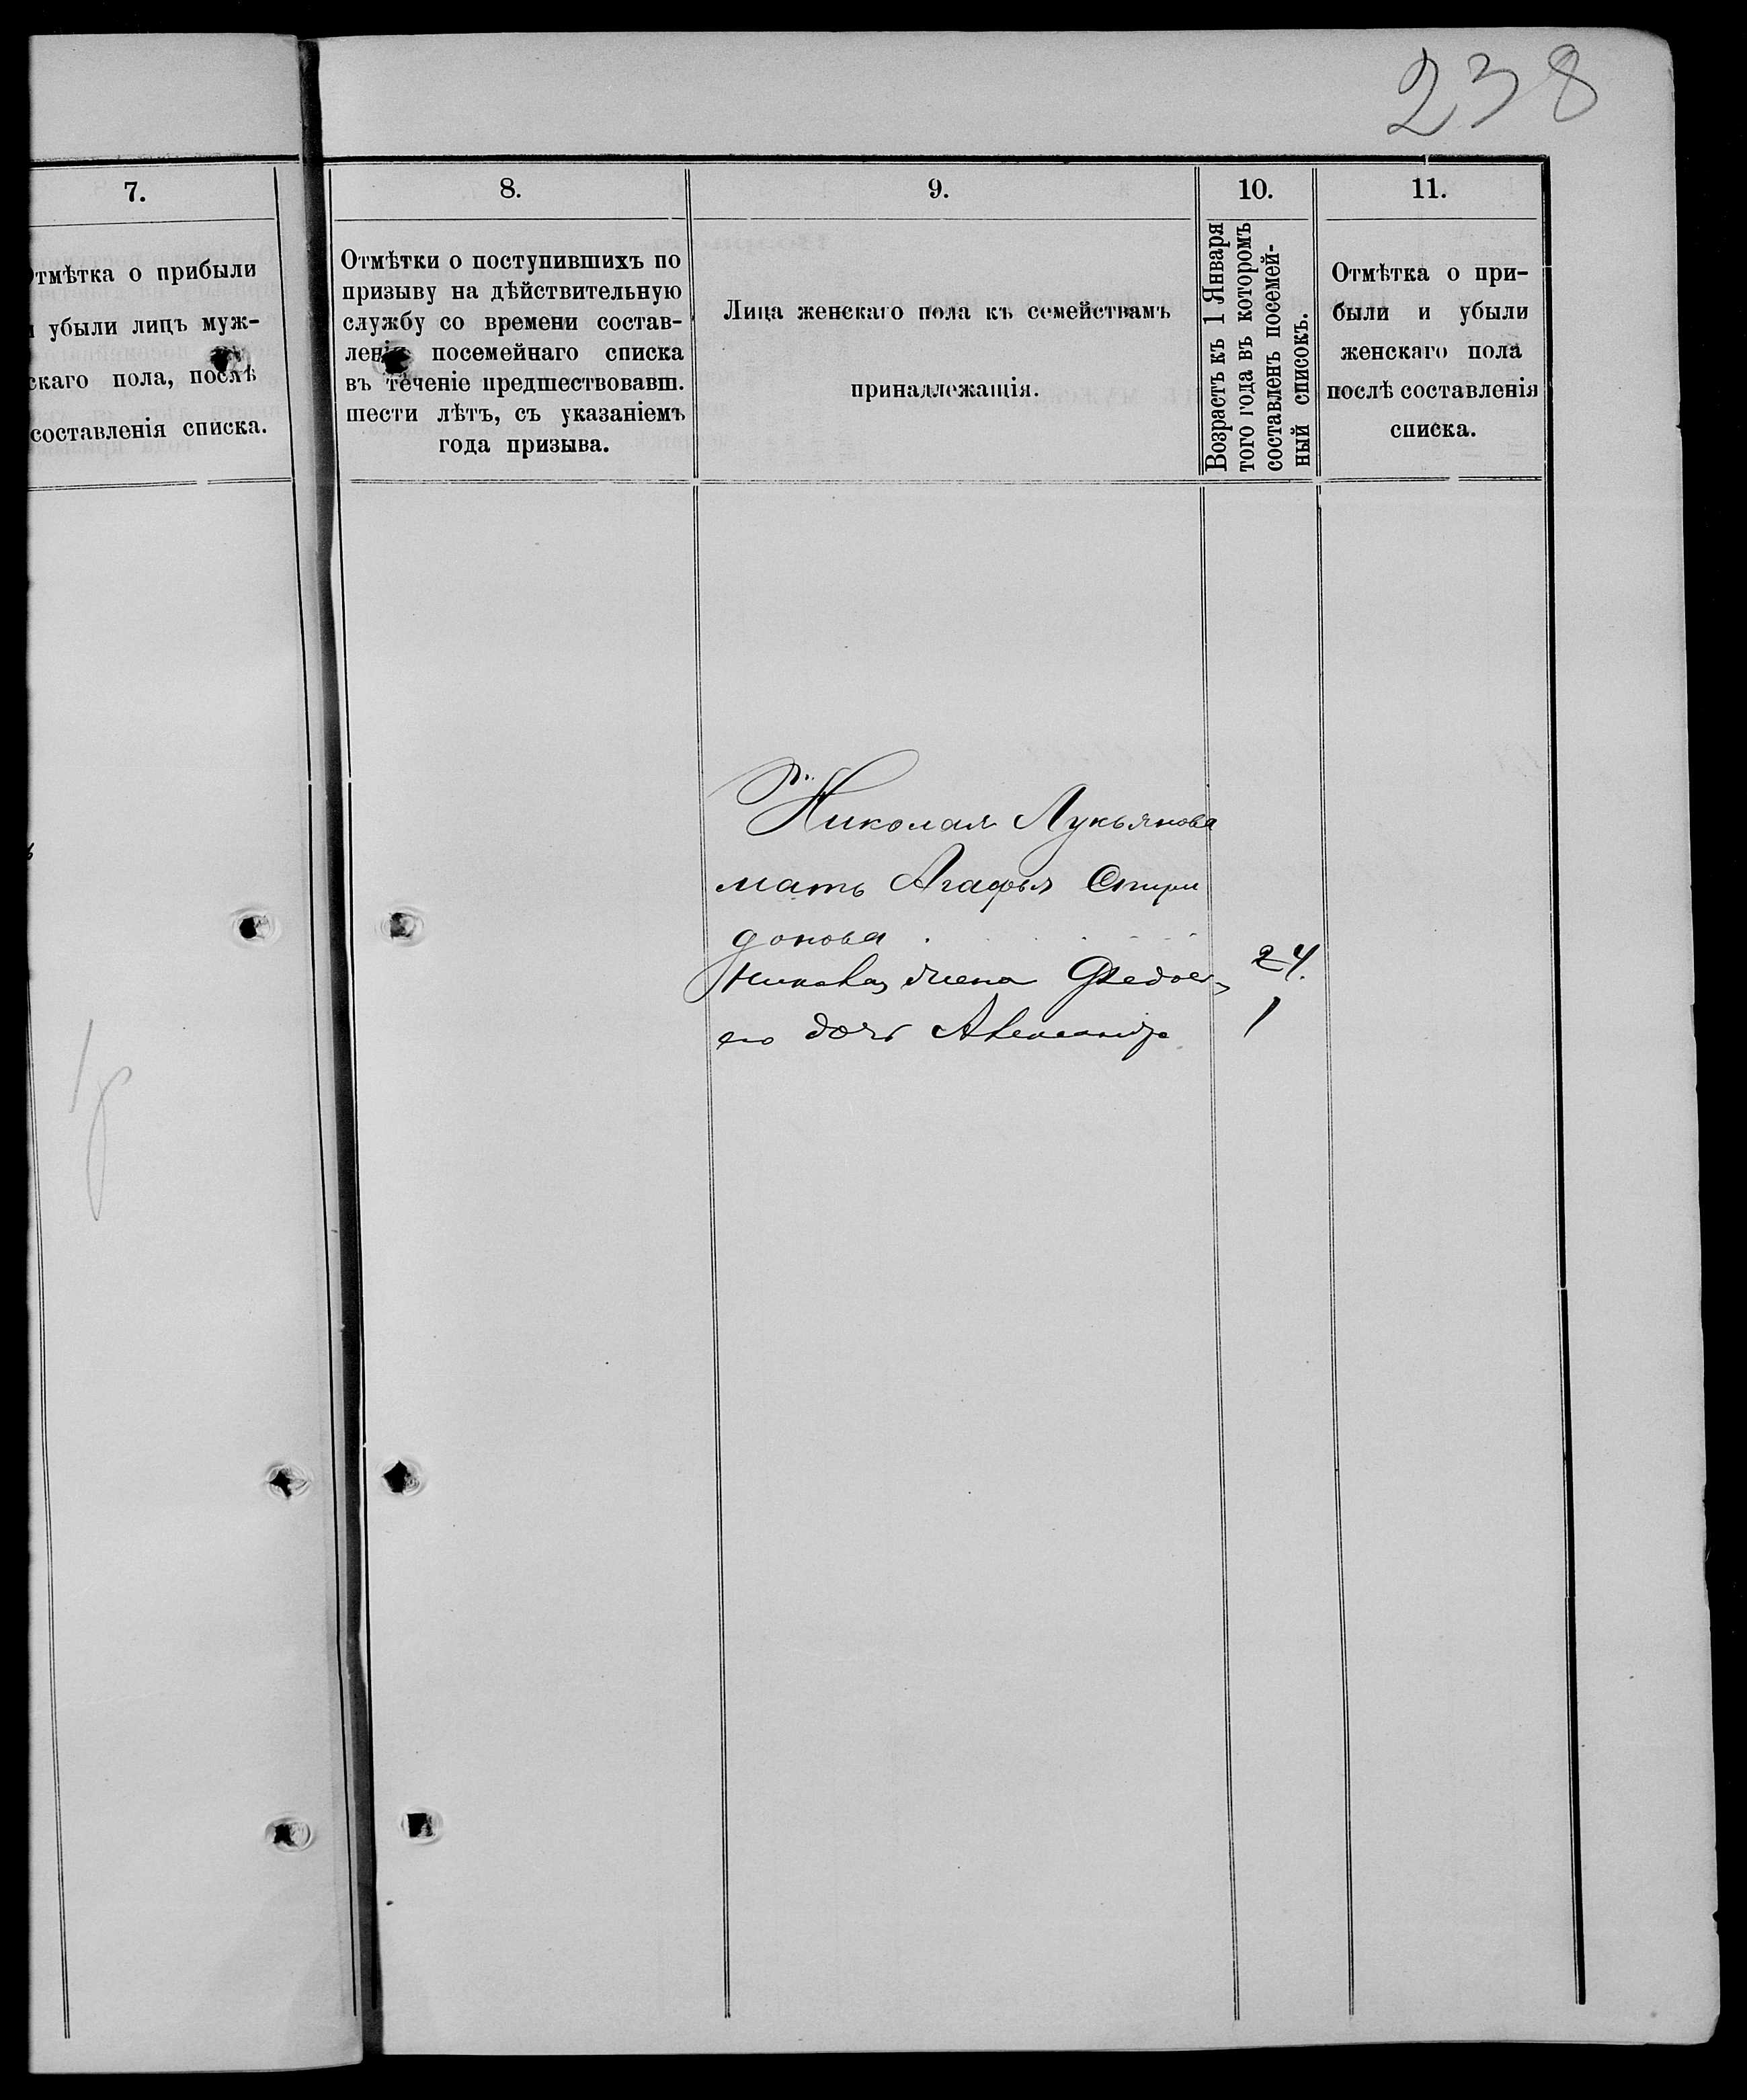 238
7.
Отмѣтка о прибыли
и убыли лицъ муж-
скаго пола, послѣ
составленія списка.
8.
Отмѣтки о поступившихъ по
призыву на дѣйствительную
службу со времени состав-
ленія посемейнаго списка
въ теченіе предшествовавш.
шести лѣтъ, съ указаніемъ
года призыва.
9.
Лица женскаго пола къ семействамъ
принадлежащія.
10.
Возрастъ къ 1 Января
того года въ которомъ
составленъ посемей-
ный списокъ.
11.
Отмѣтка о при-
были и убыли
женскаго пола
послѣ составленія
списка.
Николая Лукьянова
мать Агафья Спири
донова
жена 24.
его дочь Александра 1